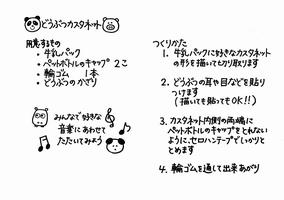 どうぶつカスタネット
用意するもの
・牛乳パック
・ペットボトルのキャップ 2こ
・輪ゴム 1本
・どうぶつのかざり
みんなで好きな
音楽にあわせて
たたいてみよう
つくりかた
1. 牛乳パックに好きなカスタネット
の形を描いて切り取ります
2. どうぶつの耳や目などを貼り
つけます
(描いても貼ってもOK!!)
3. カスタネット内側の両端に
ペットボトルのキャップをとれない
ように、セロハンテープでしっかりと
とめます
4. 輪ゴムを通して出来あがり